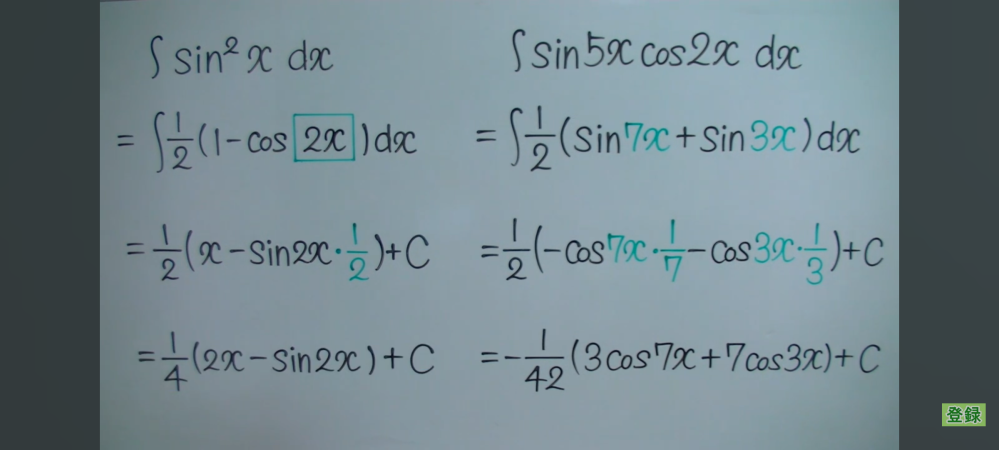 ∫ sin² x dx
= ∫ 1/2 (1 - cos 2x) dx
= 1/2 (x - sin2x · 1/2) + C
= 1/4 (2x - sin2x) + C
∫ sin5x cos2x dx
= ∫ 1/2 (sin7x + sin3x) dx
= 1/2 (-cos7x · 1/7 - cos3x · 1/3) + C
= - 1/42 (3cos7x + 7cos3x) + C
登録